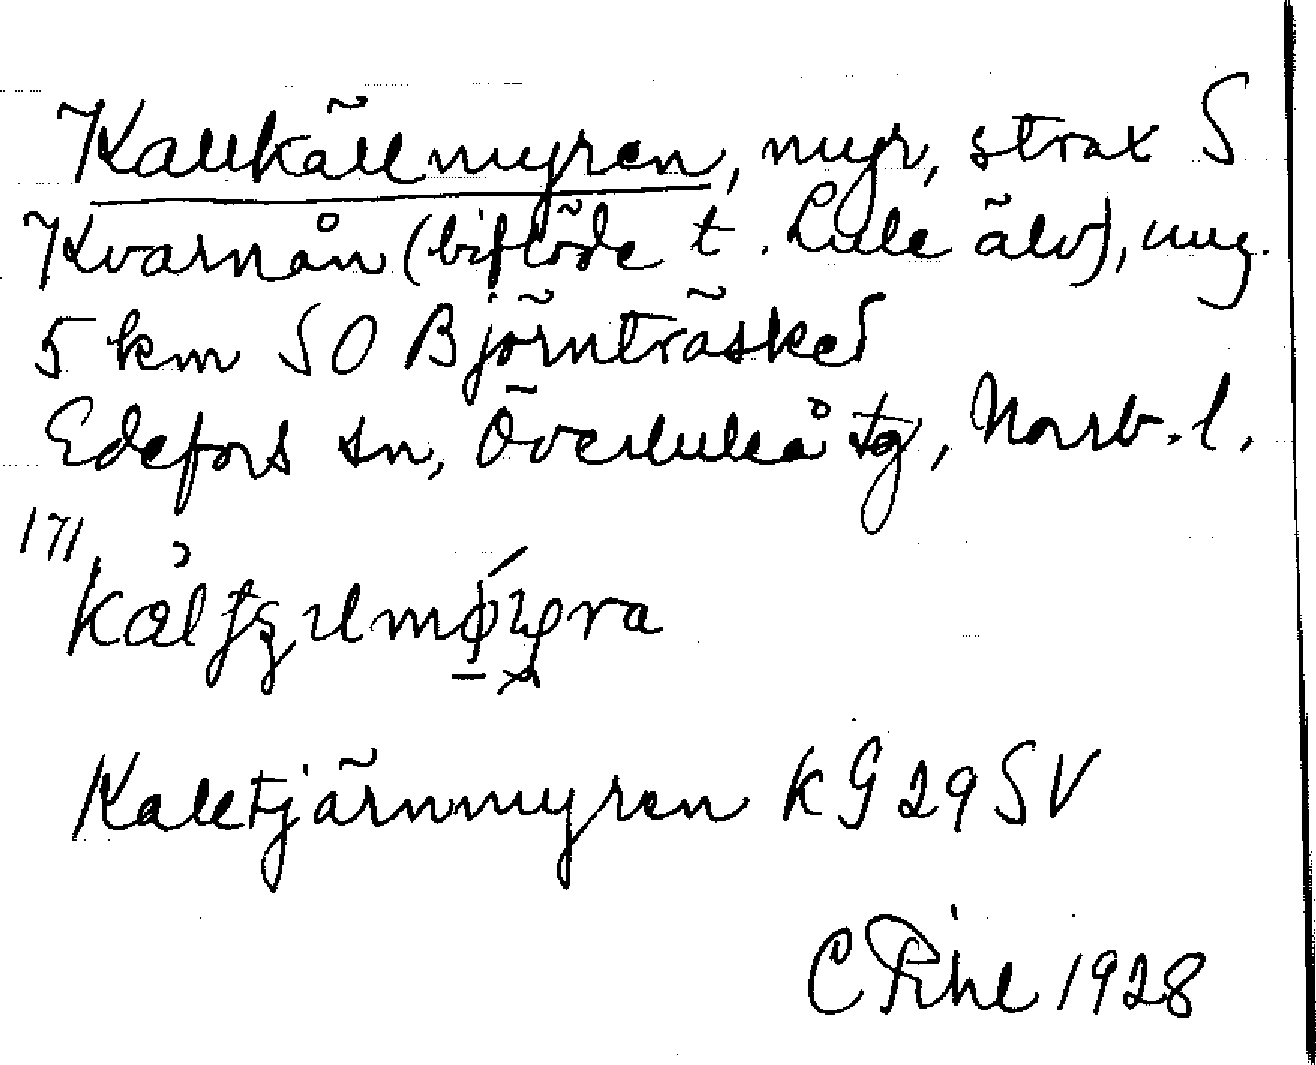 Kallkällmyren, myr, strax S
Kvarnån (biflöde t. Lule älv), ung.
5 km SO Björnträsket
Edefors sn, Överluleå tg, Norrb. l.
171
Kalltjärnmyren KG 29 SV
C Pihl 1928